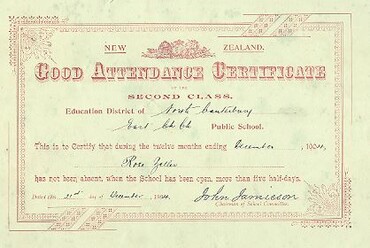 NEW ZEALAND.
GOOD ATTENDANCE CERTIFICATE
OF THE
SECOND CLASS.
Education District of North Canterbury
East Ch Ch Public School.
This is to Certify that during the twelve months ending December
Rose Zeller
has not been absent, when the School has been open, more than five half-days.
Dated this 21st day of December
John Jamieson
Chairman of School Committee.